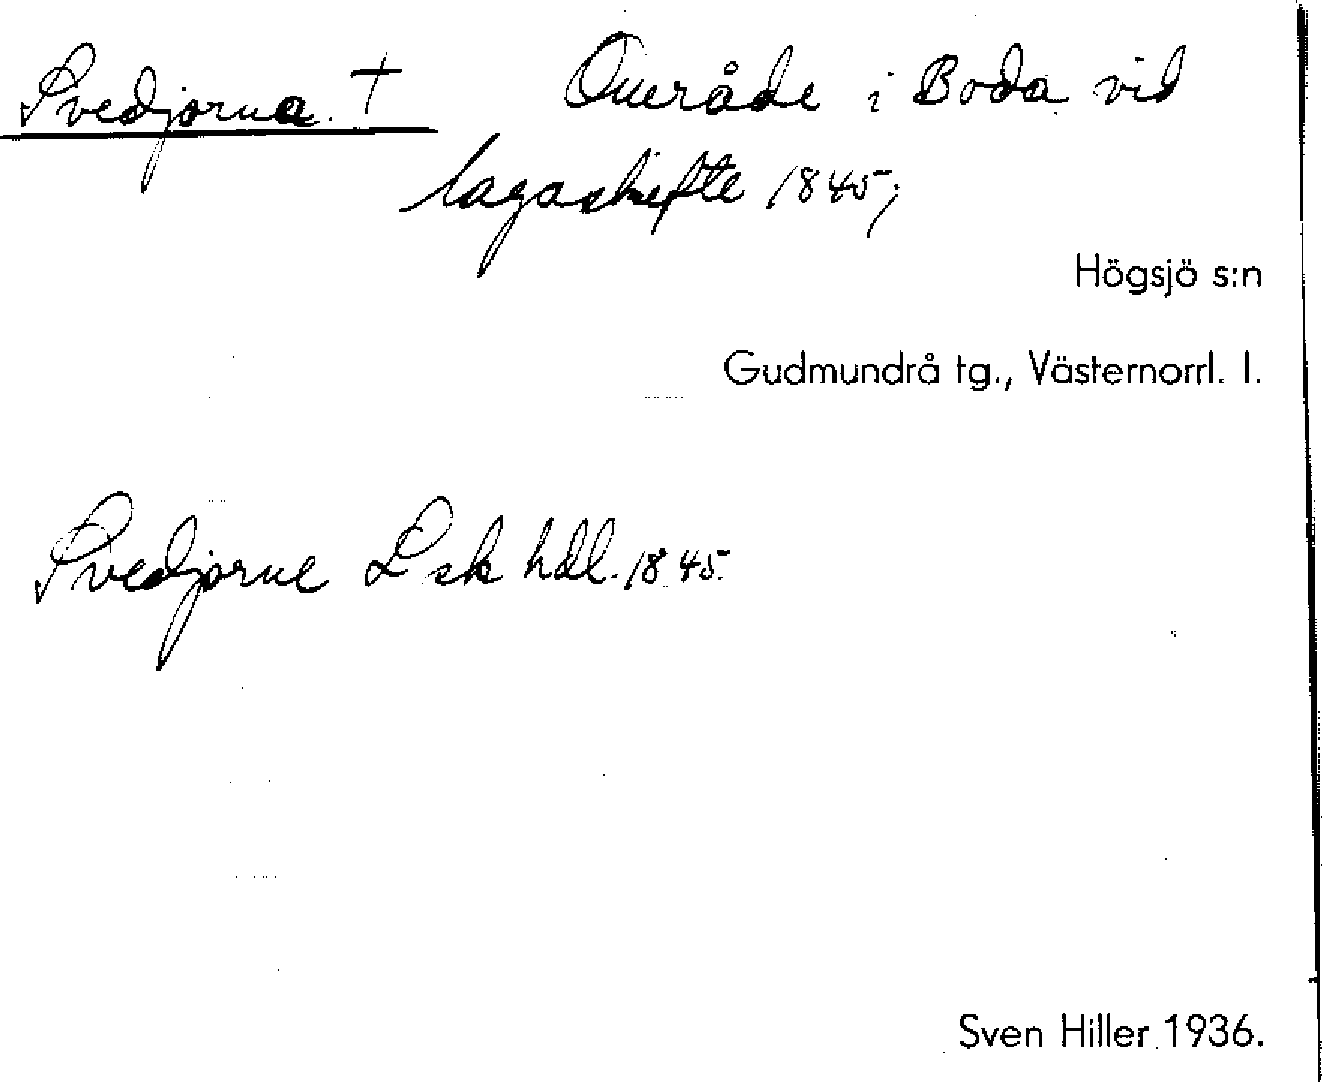 Svedjorna. † Område i Boda vid
lagaskifte 1845;
Högsjö s:n
Gudmundrå tg., Västernorrl. l.
Svedjorne L sk hdl. 1845.
Sven Hiller 1936.